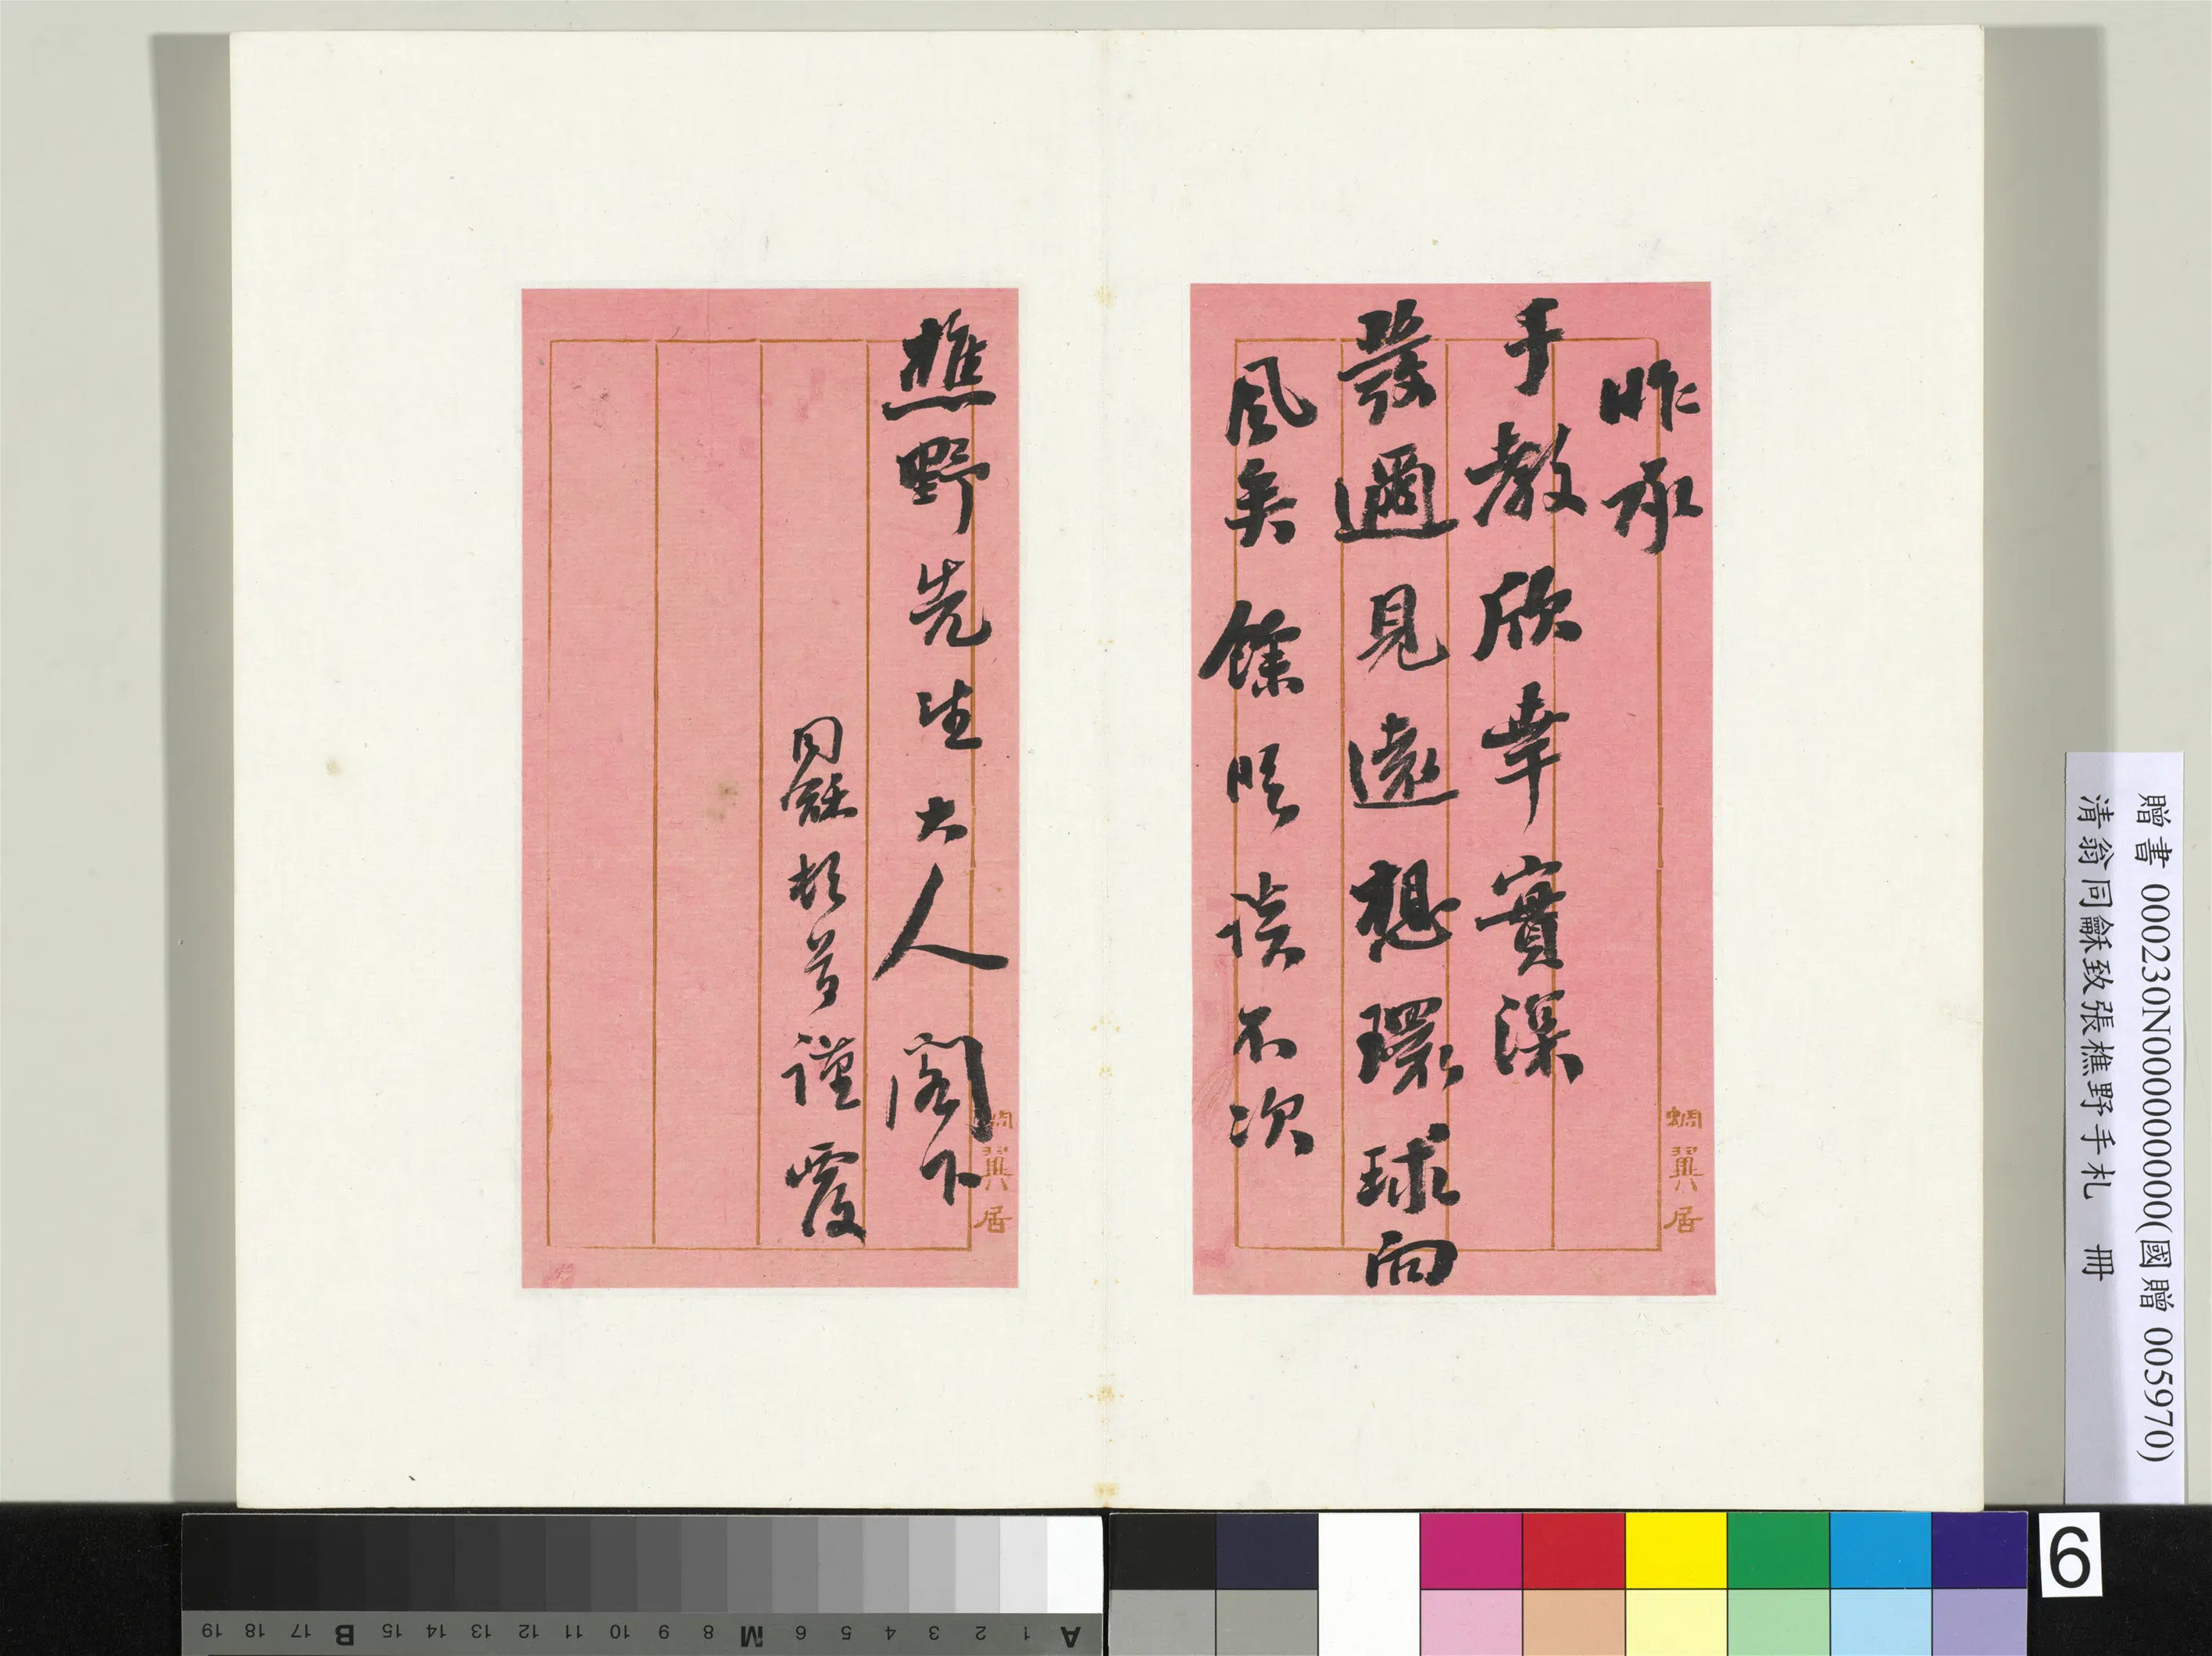 昨承
手教欣幸實深
發邇見遠想環球向
風矣餘晤談不次
蜩翼居
樵野先生大人閣下
同龢頓首謹覆
蜩翼居
贈書 000230N000000000(國贈 005970)
清翁同龢致張樵野手札 冊
6
A 1 2 3 4 5 6 M 8 9 10 11 12 13 14 15 B 17 18 19